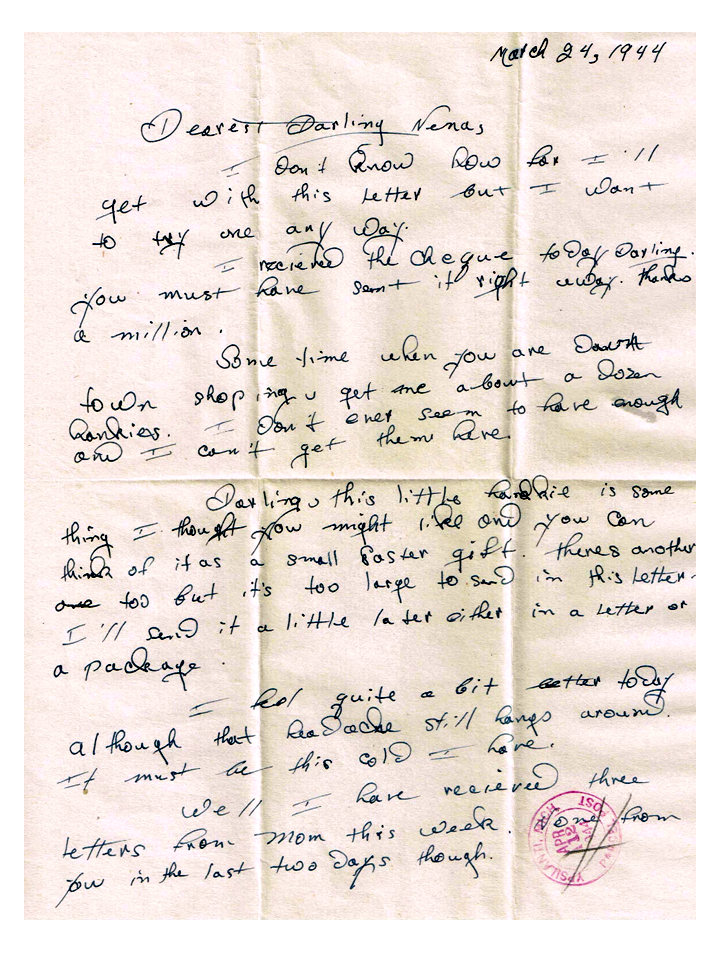 March 24, 1944
Dearest Darling Nena,
I don't know how far I'll
get with this letter but I want
to try one any way.
I recieved the cheque today Darling.
You must have sent it right away. thanks
a million.
Some time when you are down
town shoping get me about a dozen
hankies. I don't ever seem to have enough
and I can't get them here.
Darling this little hankie is some
thing I thought you might like and you can
think of it as a small Easter gift. theres another
one too but it's too large to send in this letter.
I'll send it a little later either in a letter or
a package.
I feel quite a bit better today
although that headache still hangs around.
It must be this cold I have.
Well I have recieved three
letters from Mom this week. None from
you in the last two days though.
YPSILANTI, MICH.
APR
12
POST